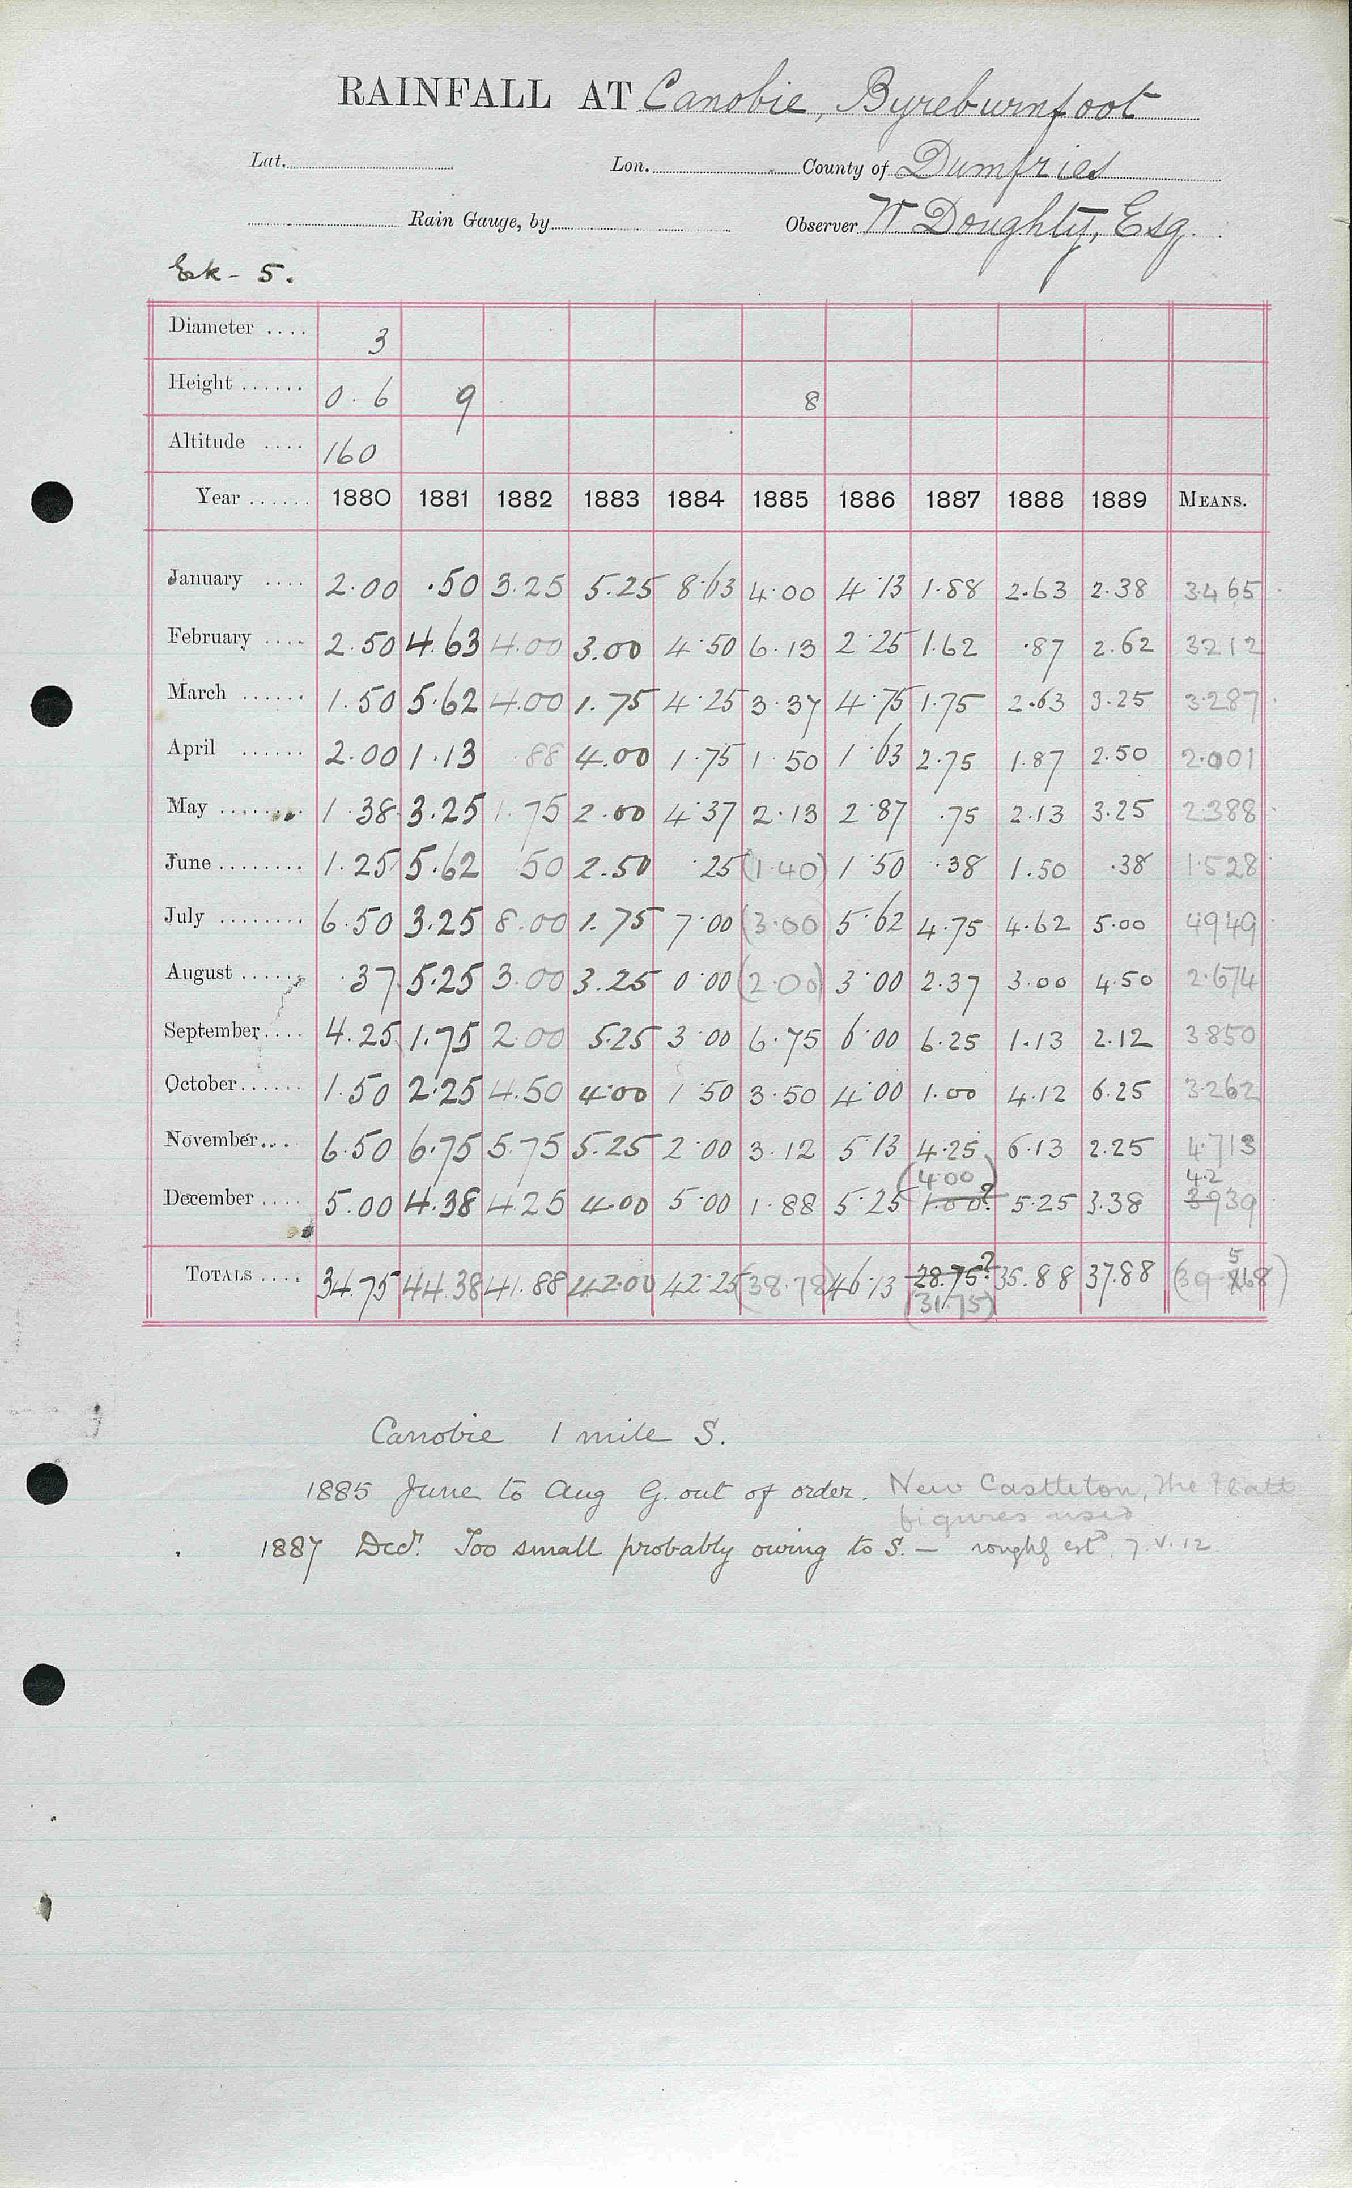 RAINFALL AT Canobie, Byreburnfoot
Lat. Lon. County of Dumfries
Rain Gauge, by Observer W Doughty, Esq.
Ek - 5.
Diameter .... 3
Height ...... 0.6 9 8
Altitude .... 160
Year ...... 1880 1881 1882 1883 1884 1885 1886 1887 1888 1889 MEANS.
January .... 2.00 .50 3.25 5.25 8.63 4.00 4.13 1.88 2.63 2.38 3.465
February .... 2.50 4.63 4.00 3.00 4.50 6.13 2.25 1.62 .87 2.62 3.212
March ...... 1.50 5.62 4.00 1.75 4.25 3.37 4.75 1.75 2.63 3.25 3.287
April ...... 2.00 1.13 .88 4.00 1.75 1.50 1.63 2.75 1.87 2.50 2.001
May ........ 1.38 3.25 1.75 2.00 4.37 2.13 2.87 .75 2.13 3.25 2.388
June ........ 1.25 5.62 .50 2.50 .25 (1.40) 1.50 .38 1.50 .38 1.528
July ........ 6.50 3.25 8.00 1.75 7.00 (3.00) 5.62 4.75 4.62 5.00 4.949
August ...... .37 5.25 3.00 3.25 0.00 (2.00) 3.00 2.37 3.00 4.50 2.674
September .... 4.25 1.75 2.00 5.25 3.00 6.75 6.00 6.25 1.13 2.12 3.850
October ...... 1.50 2.25 4.50 4.00 1.50 3.50 4.00 1.00 4.12 6.25 3.262
November ... 6.50 6.75 5.75 5.25 2.00 3.12 5.13 4.25 6.13 2.25 4.713
(4.00) 4.2
December .... 5.00 4.38 4.25 4.00 5.00 1.88 5.25 1.00? 5.25 3.38 3.939
5
TOTALS .... 34.75 44.38 41.88 42.00 42.25 (38.78) 46.13 28.75? 35.88 37.88 (39.268)
(31.75)
Canobie 1 mile S.
1885 June to Aug G. out of order. New Castleton, The Flatt
figures used
1887 Decr. Too small probably owing to S. — roughly estd. 7.V.12